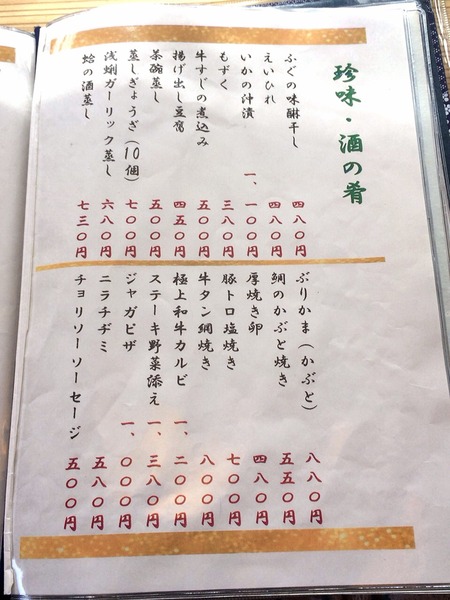 珍味・酒の肴
ふぐの味醂干し 四八〇円
えいひれ 四八〇円
いかの沖漬 一、一〇〇円
もずく 三八〇円
牛すじの煮込み 五〇〇円
揚げ出し豆腐 四五〇円
茶碗蒸し 五〇〇円
蒸しぎょうざ（10個） 七〇〇円
浅蜊ガーリック蒸し 六八〇円
蛤の酒蒸し 七三〇円
ぶりかま（かぶと） 八八〇円
鯛のかぶと焼き 五五〇円
厚焼き卵 四八〇円
豚トロ塩焼き 七〇〇円
牛タン網焼き 八〇〇円
極上和牛カルビ 一、二〇〇円
ステーキ野菜添え 一、三八〇円
ジャガピザ 一、〇〇〇円
ニラチヂミ 五八〇円
チョリソーソーセージ 五〇〇円